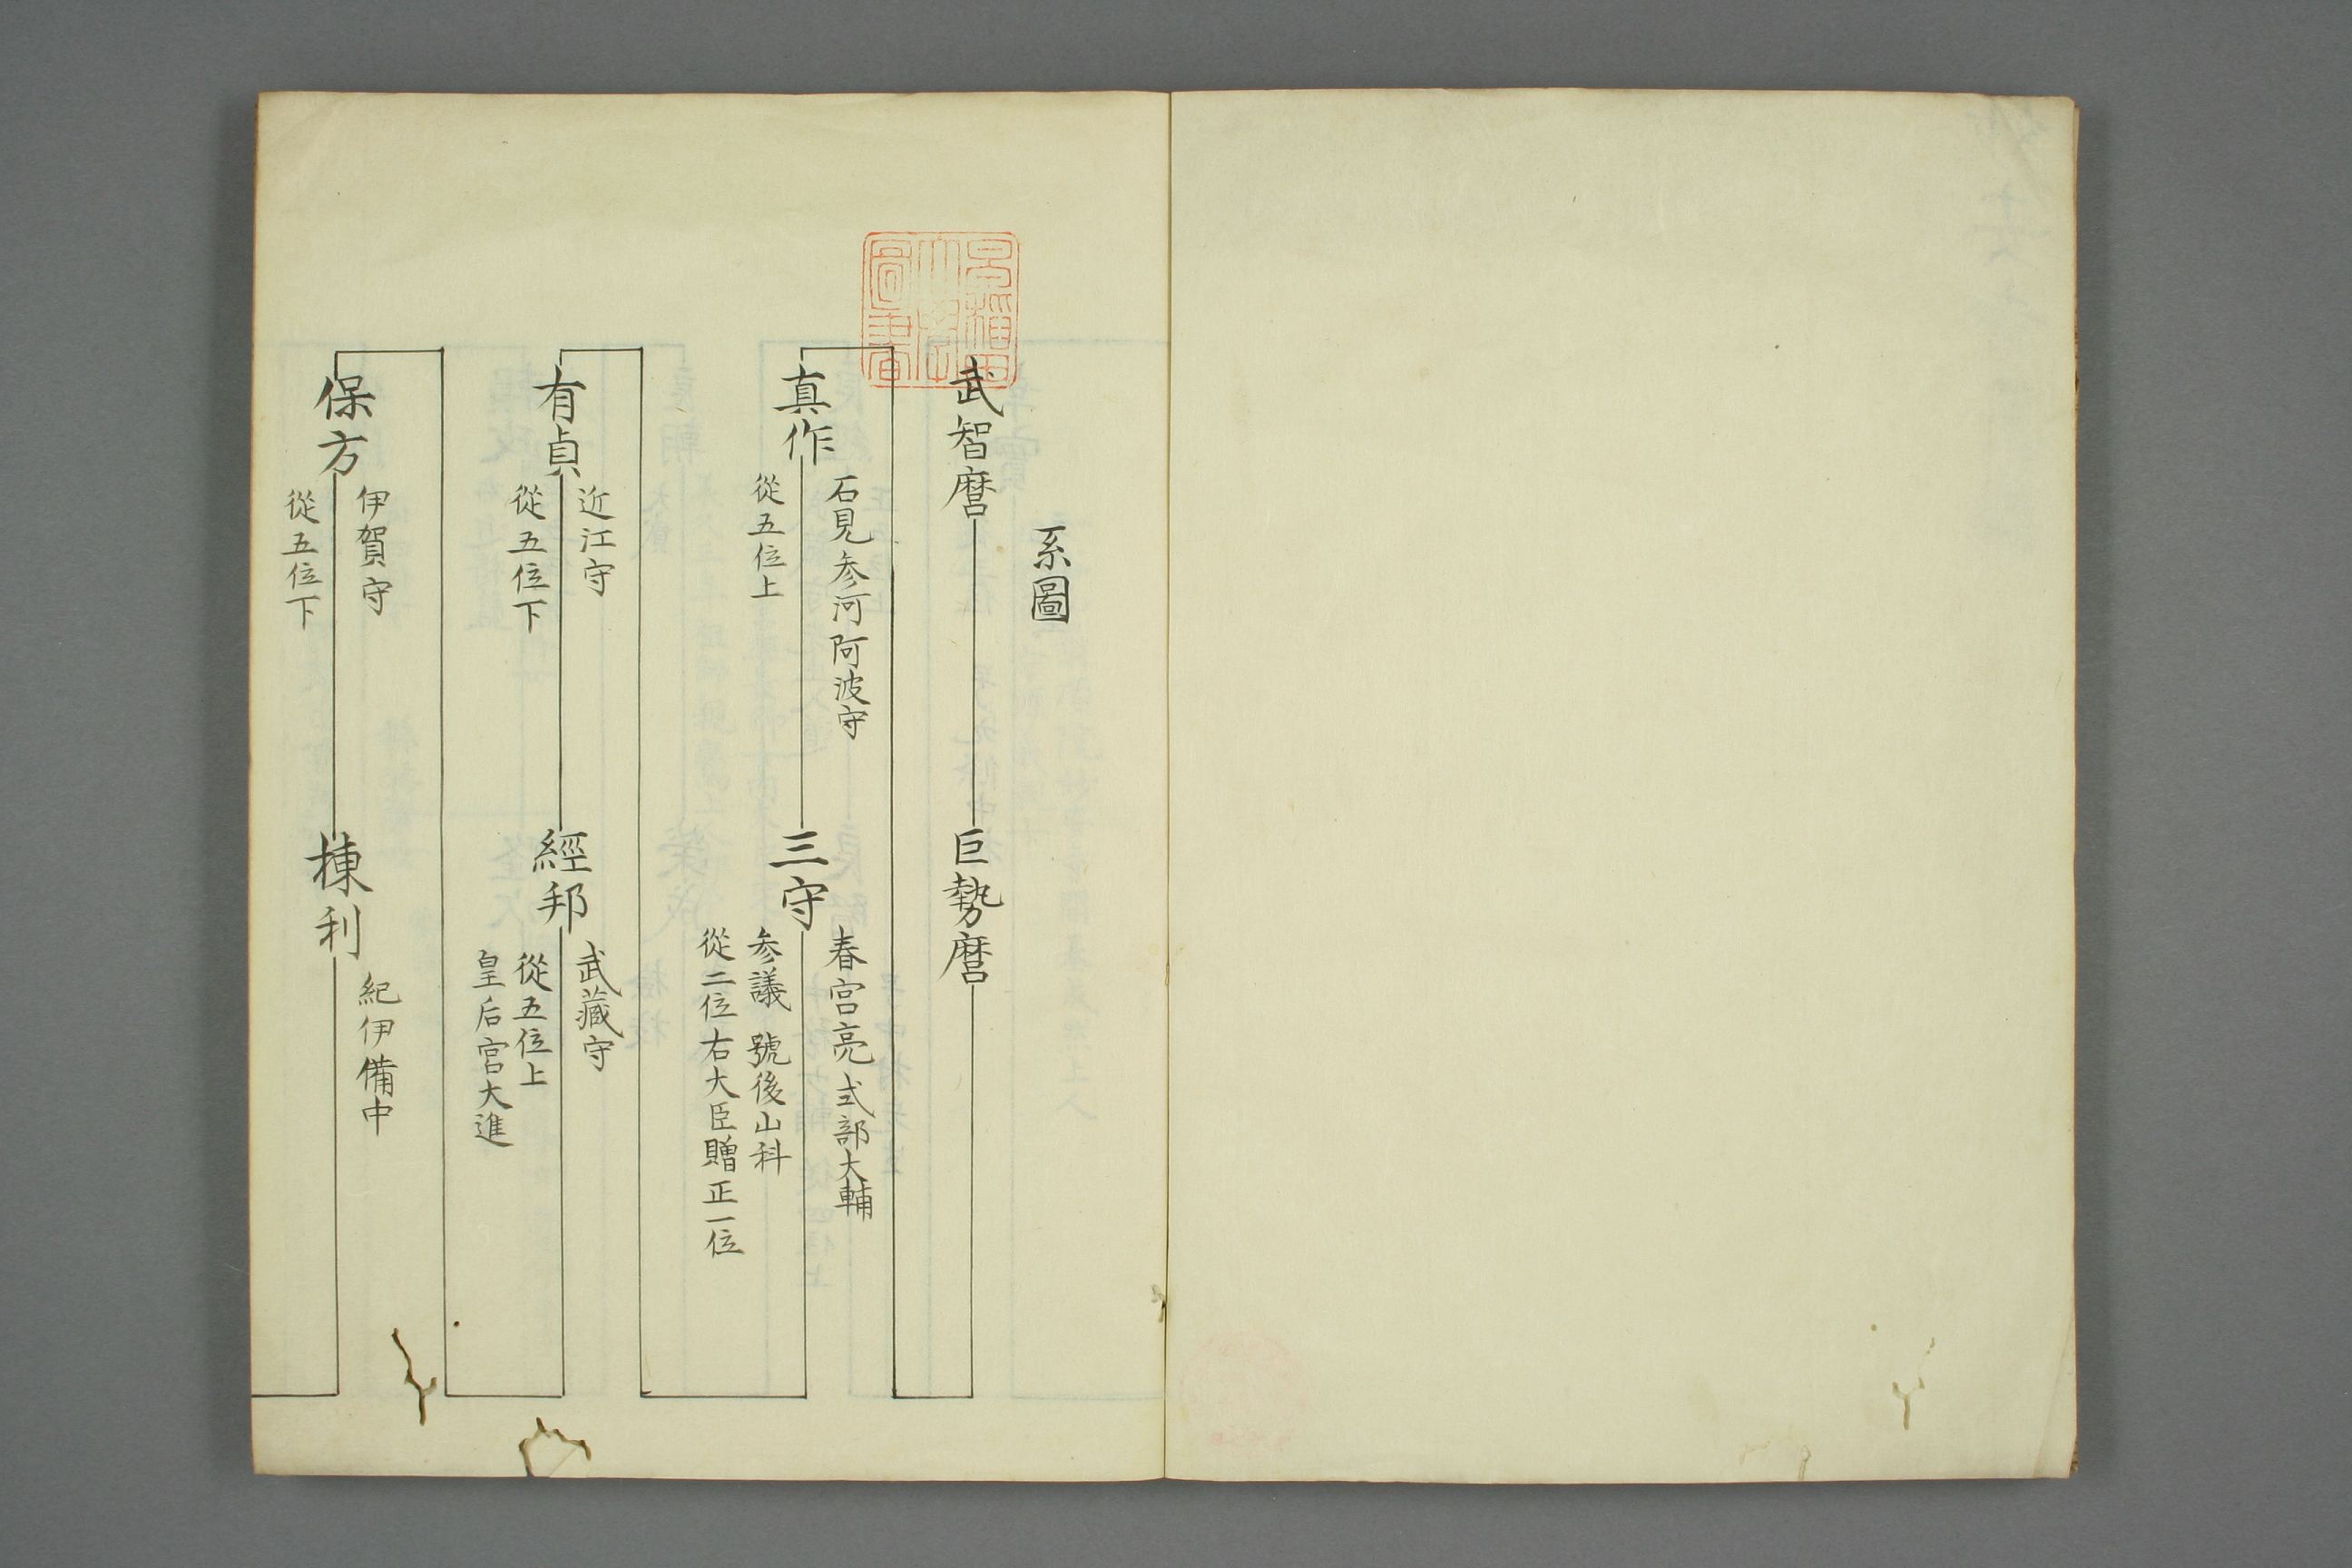 系圖
武智麿
巨勢麿
真作
石見参河阿波守
從五位上
三守
春宮亮式部大輔
参議 號後山科
從二位右大臣贈正一位
有貞
近江守
從五位下
經邦
武藏守
從五位上
皇后宮大進
保方
伊賀守
從五位下
棟利
紀伊備中
早稲田
大學
圖書